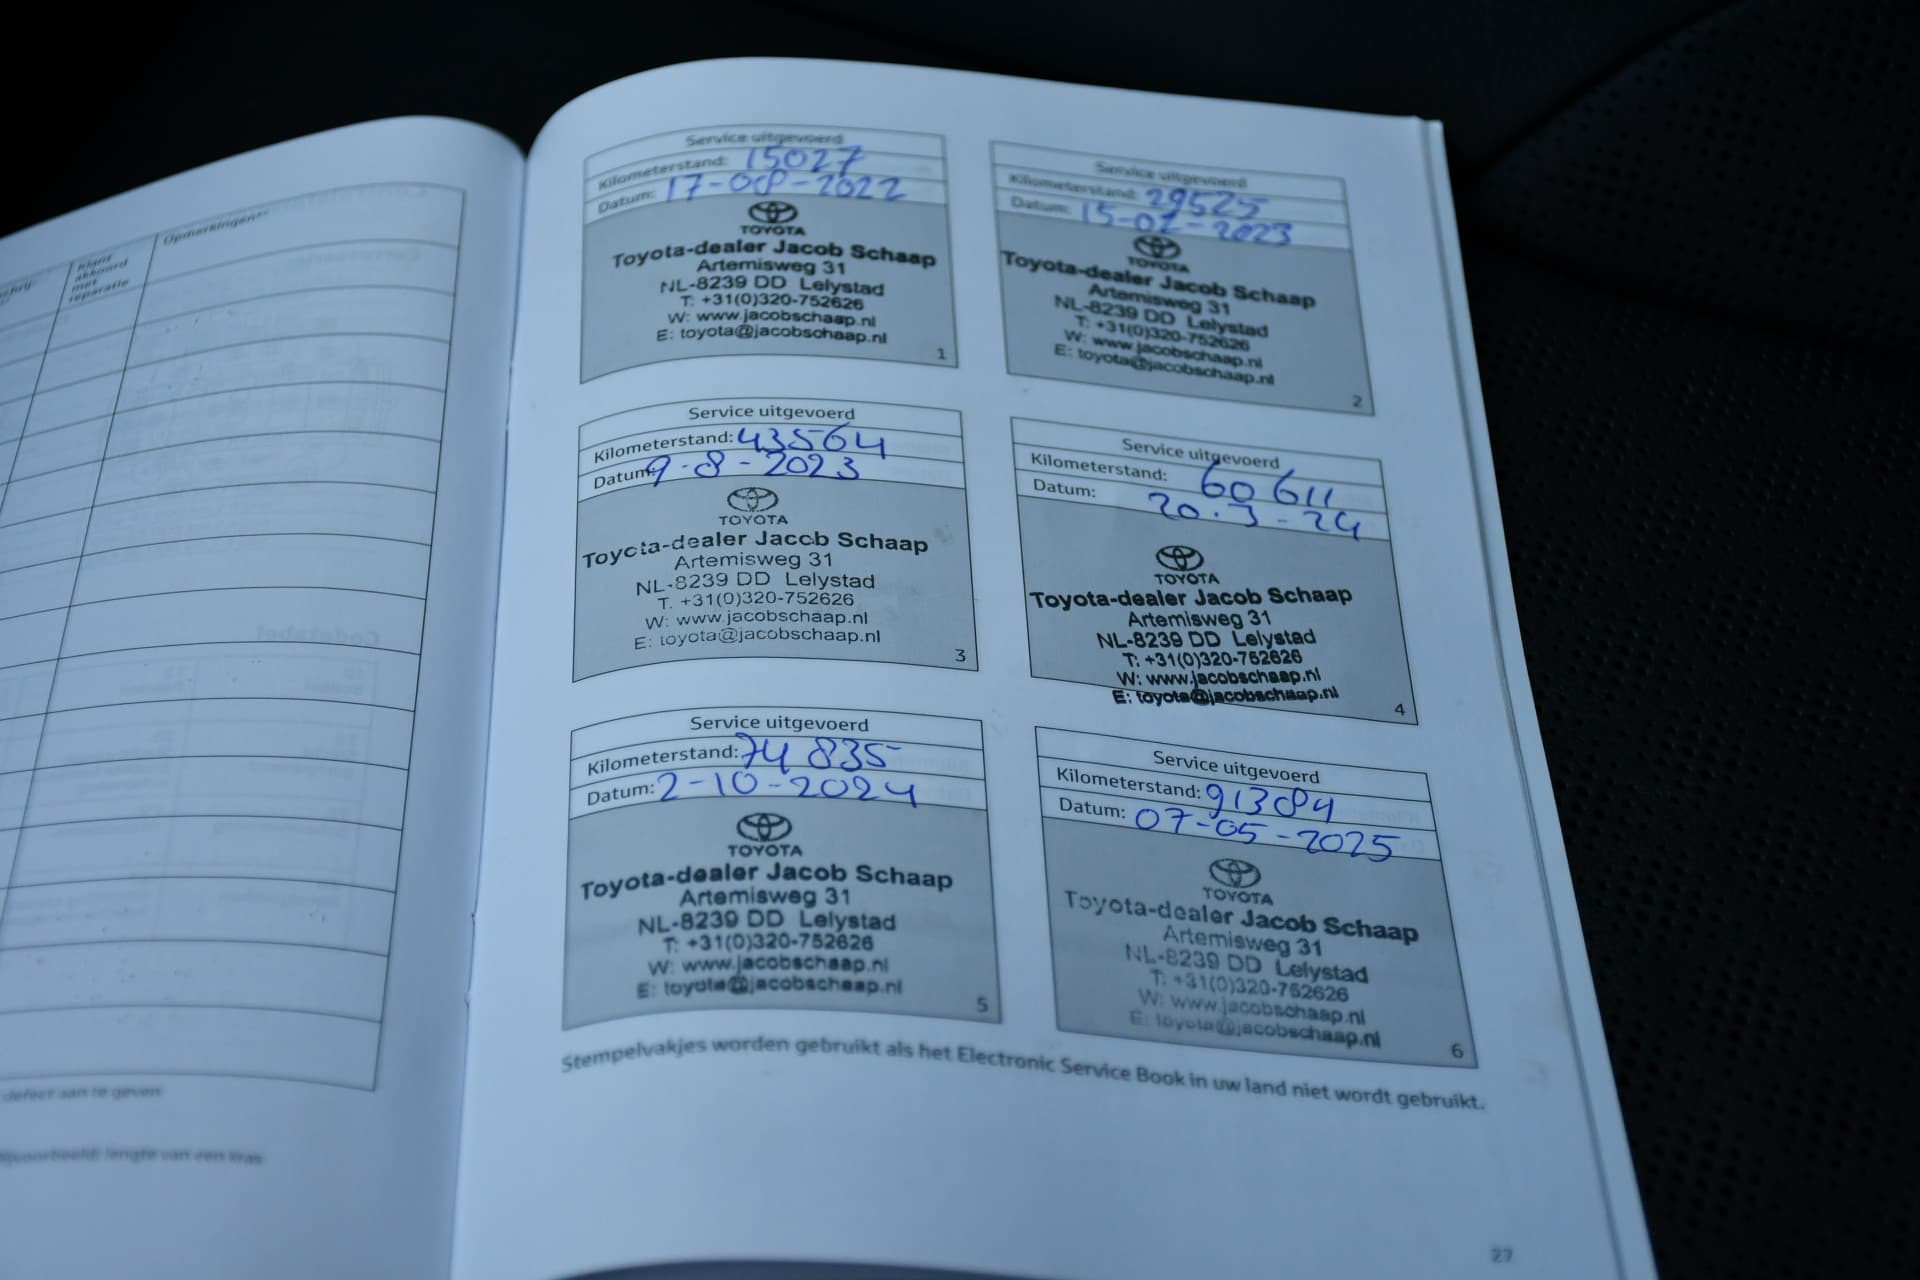 schrij
Klant
akkoord
met
reparatie
Opmerkingen**
defect aan te geven
bijvoorbeeld: lengte van een kras
Service uitgevoerd
Kilometerstand: 15027
Datum: 17-08-2022
TOYOTA
Toyota-dealer Jacob Schaap
Artemisweg 31
NL-8239 DD Lelystad
T: +31(0)320-752626
W: www.jacobschaap.nl
E: toyota@jacobschaap.nl
1
Service uitgevoerd
Kilometerstand: 29525
Datum: 15-02-2023
TOYOTA
Toyota-dealer Jacob Schaap
Artemisweg 31
NL-8239 DD Lelystad
T: +31(0)320-752626
W: www.jacobschaap.nl
E: toyota@jacobschaap.nl
2
Service uitgevoerd
Kilometerstand: 43564
Datum: 9-8-2023
TOYOTA
Toyota-dealer Jacob Schaap
Artemisweg 31
NL-8239 DD Lelystad
T. +31(0)320-752626
W: www.jacobschaap.nl
E: toyota@jacobschaap.nl
3
Service uitgevoerd
Kilometerstand: 60 611
Datum: 20.3-24
TOYOTA
Toyota-dealer Jacob Schaap
Artemisweg 31
NL-8239 DD Lelystad
T: +31(0)320-752626
W: www.jacobschaap.nl
E: toyota@jacobschaap.nl
4
Service uitgevoerd
Kilometerstand: 74 835
Datum: 2-10-2024
TOYOTA
Toyota-dealer Jacob Schaap
Artemisweg 31
NL-8239 DD Lelystad
T: +31(0)320-752626
W: www.jacobschaap.nl
E: toyota@jacobschaap.nl
5
Service uitgevoerd
Kilometerstand: 91384
Datum: 07-05-2025
TOYOTA
Toyota-dealer Jacob Schaap
Artemisweg 31
NL-8239 DD Lelystad
T: +31(0)320-752626
W: www.jacobschaap.nl
E: toyota@jacobschaap.nl
6
Stempelvakjes worden gebruikt als het Electronic Service Book in uw land niet wordt gebruikt.
27